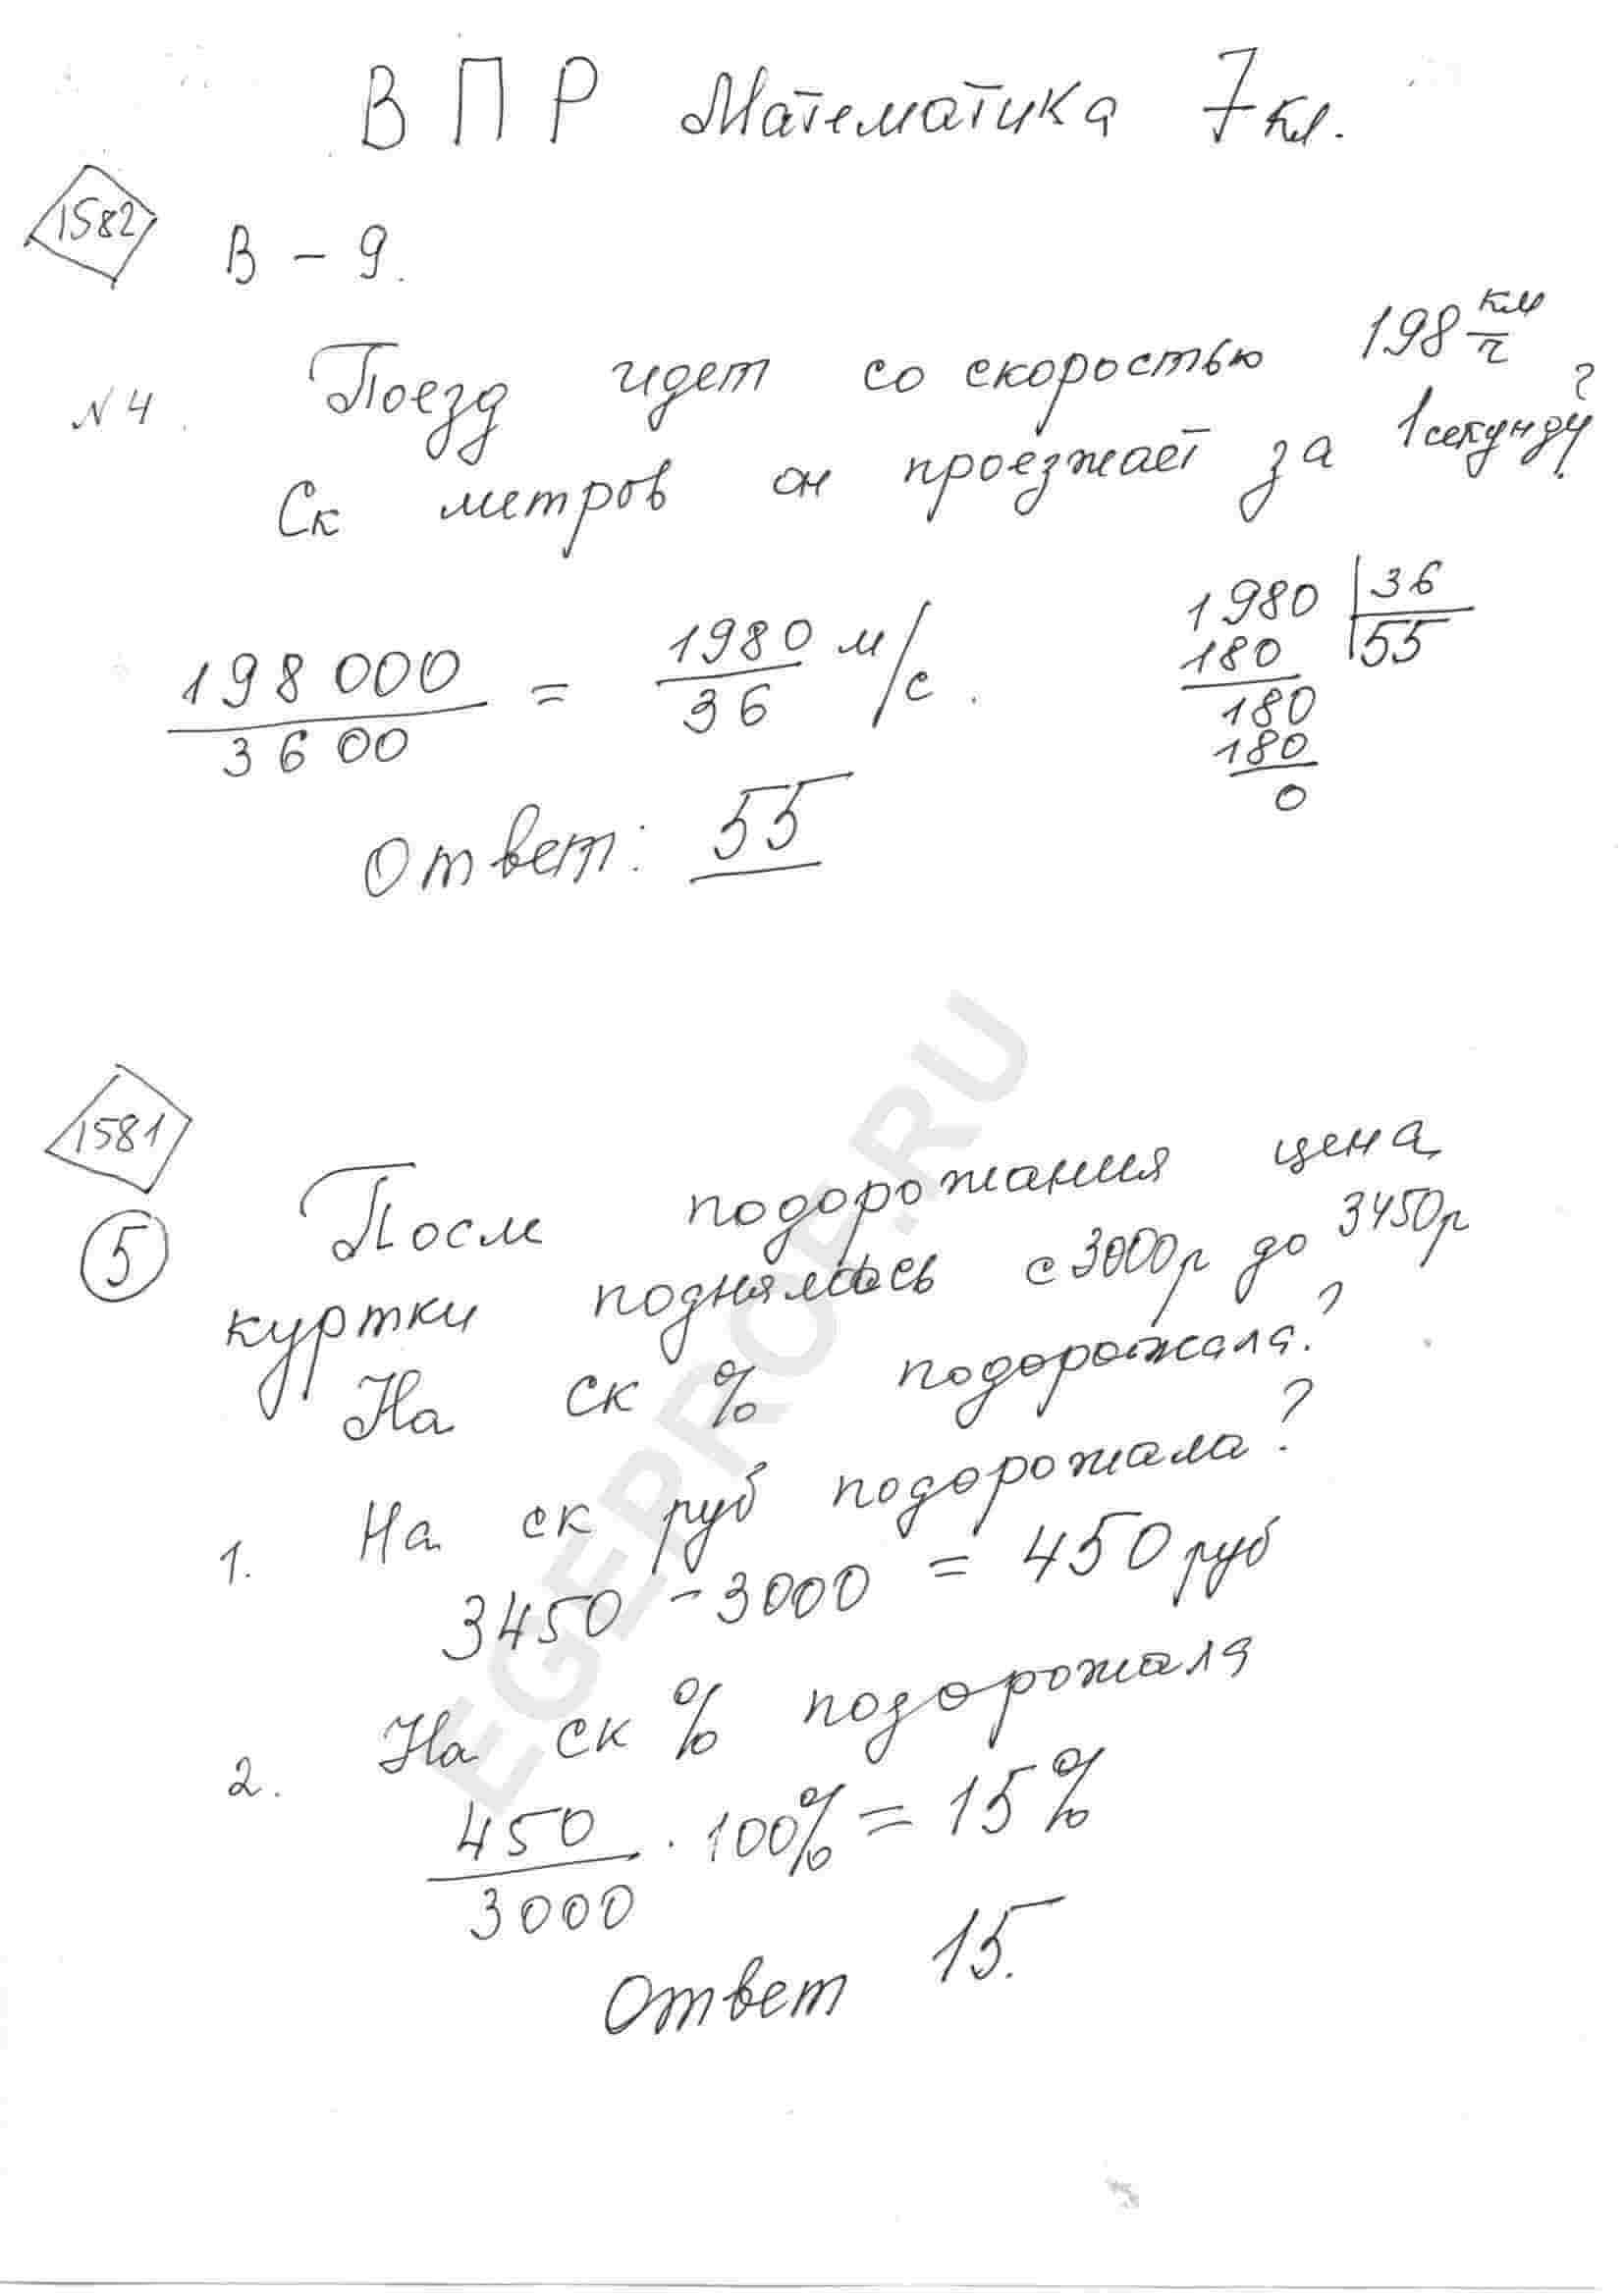 ВПР Математика 7 кл.
1582
В - 9.
N 4. Поезд идет со скоростью 198 км/ч
Ск метров он проезжает за 1 секунду?
198 000 / 3600 = 1980 / 36 м/с.
1980 | 36
180 | 55
180
180
0
Ответ: 55
1581
5 После подорожания цена
куртки поднялась с 3000р до 3450р
На ск % подорожала?
1. На ск руб подорожала?
3450 - 3000 = 450 руб
2. На ск % подорожала
450 / 3000 · 100% = 15%
Ответ 15.
EGEPROF.RU